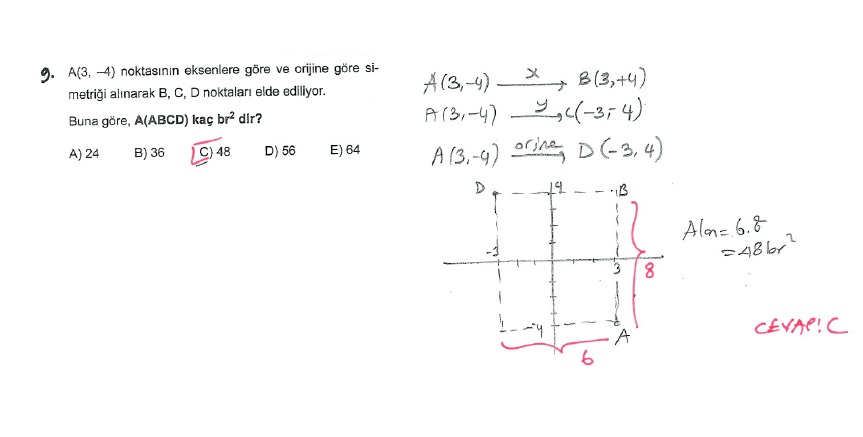 9. A(3, –4) noktasının eksenlere göre ve orijine göre si-
metriği alınarak B, C, D noktaları elde ediliyor.
Buna göre, A(ABCD) kaç br² dir?
A) 24 B) 36 C) 48 D) 56 E) 64
A(3,-4) x B(3,+4)
A(3,-4) y C(-3,-4)
A(3,-4) orjine D(-3,4)
D 4 B
-3 3 8
-4 A
6
Alan = 6.8
= 48br²
CEVAP: C